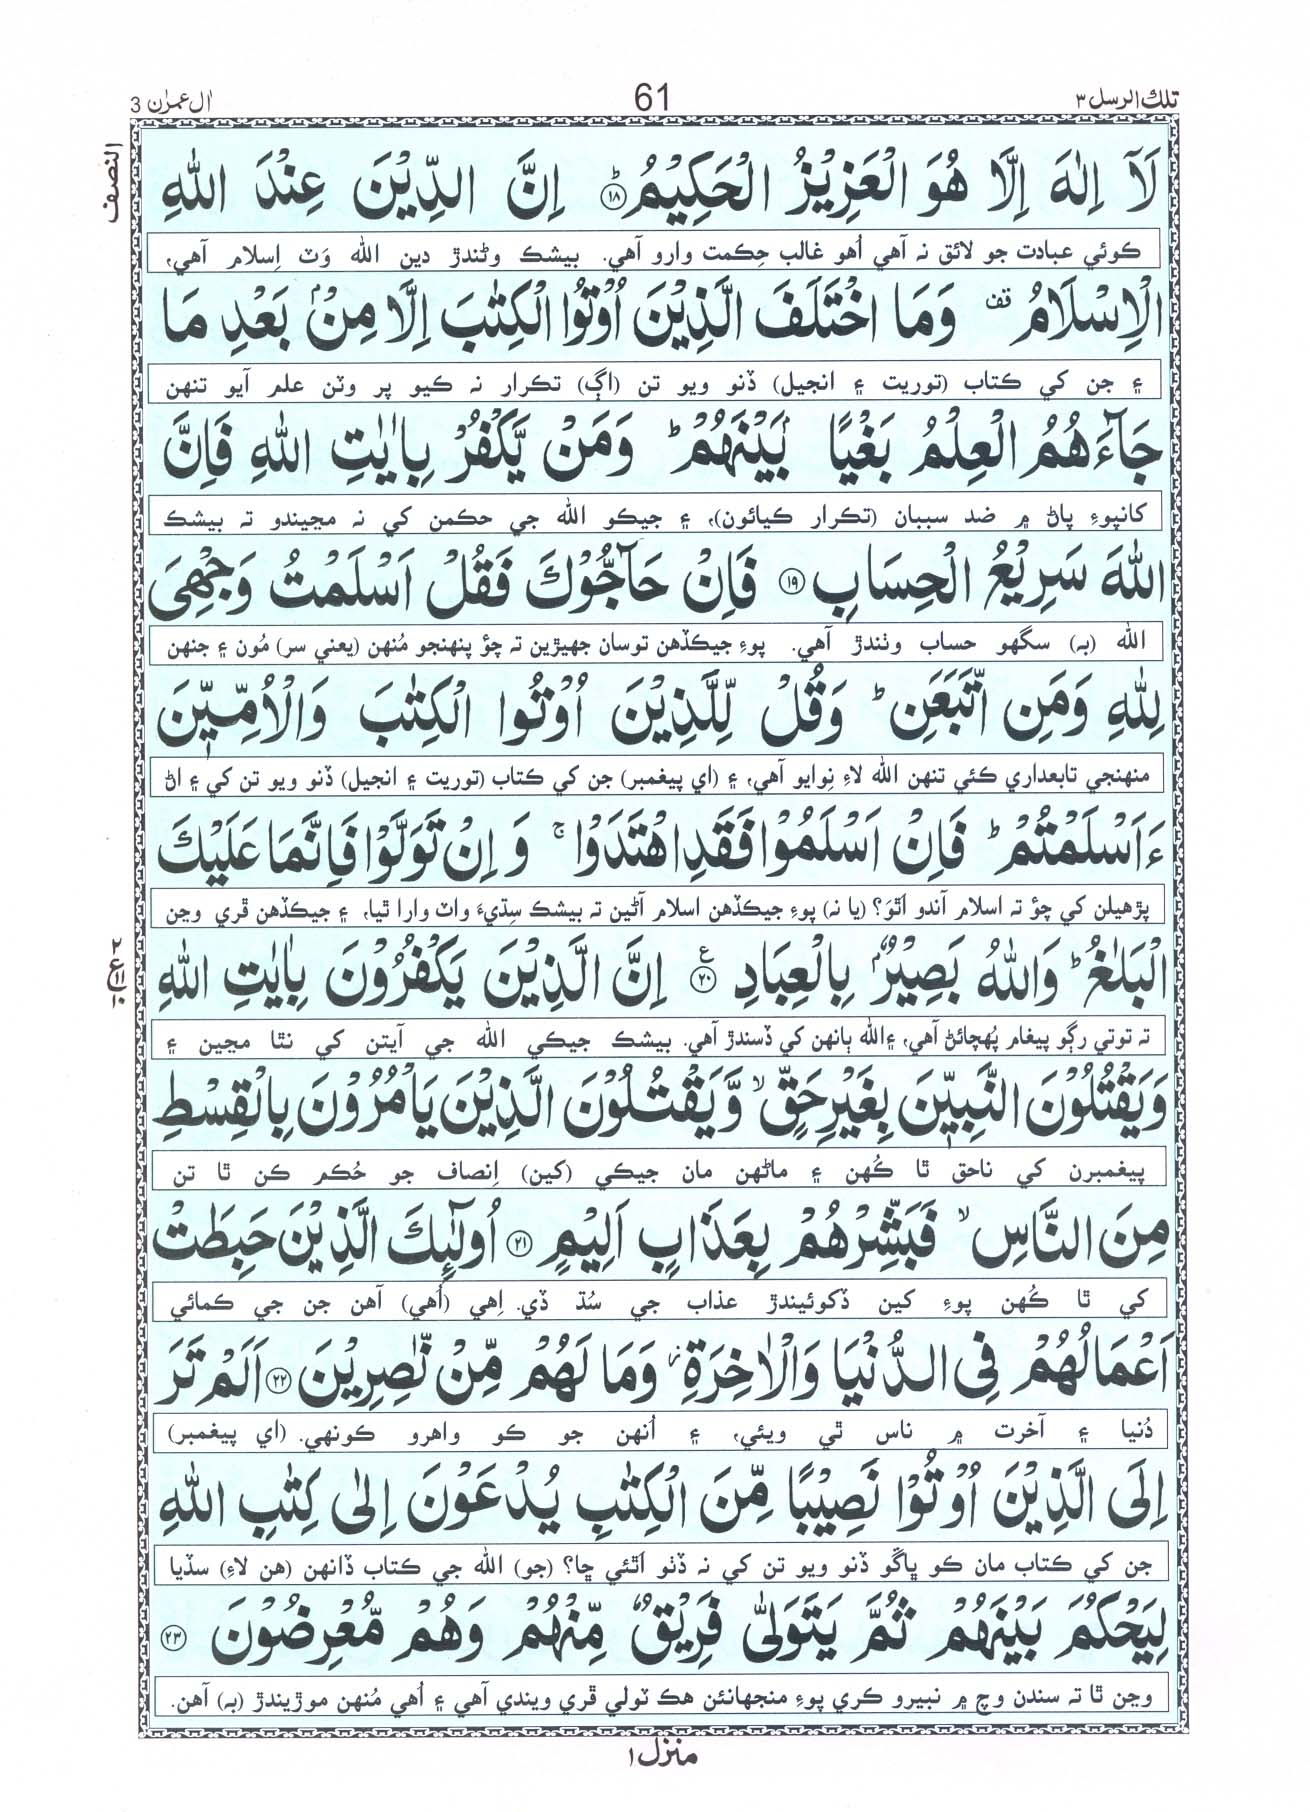 تلك الرسل ٣
61
اٰل عمرٰن 3
النصف
لَاۤ اِلٰهَ اِلَّا هُوَ الْعَزِيْزُ الْحَكِيْمُؕ ۱۸ اِنَّ الدِّيْنَ عِنْدَ اللّٰهِ
ڪوئي عبادت جو لائق نہ آهي اُهو غالب حِڪمت وارو آهي. بيشڪ وڻندڙ دين الله وَٽ اِسلام آهي،
الْاِسْلَامُ قف وَمَا اخْتَلَفَ الَّذِيْنَ اُوْتُوا الْكِتٰبَ اِلَّا مِنْۢ بَعْدِ مَا
۽ جن کي ڪتاب (توريت ۽ انجيل) ڏنو ويو تن (اڳ) تڪرار نہ ڪيو پر وٽن علم آيو تنهن
جَآءَهُمُ الْعِلْمُ بَغْيًاۢ بَيْنَهُمْؕ وَمَنْ يَّكْفُرْ بِاٰيٰتِ اللّٰهِ فَاِنَّ
کانپوءِ پاڻ ۾ ضد سببان (تڪرار ڪيائون)، ۽ جيڪو الله جي حڪمن کي نہ مڃيندو تہ بيشڪ
اللّٰهَ سَرِيْعُ الْحِسَابِ ۱۹ فَاِنْ حَآجُّوْكَ فَقُلْ اَسْلَمْتُ وَجْهِيَ
الله (بہ) سگهو حساب وٺندڙ آهي. پوءِ جيڪڏهن توسان جهيڙين تہ چؤ پنهنجو مُنهن (يعني سر) مُون ۽ جنهن
لِلّٰهِ وَمَنِ اتَّبَعَنِؕ وَقُلْ لِّلَّذِيْنَ اُوْتُوا الْكِتٰبَ وَالْاُمِّيّٖنَ
منهنجي تابعداري ڪئي تنهن الله لاءِ نِوايو آهي، ۽ (اي پيغمبر) جن کي ڪتاب (توريت ۽ انجيل) ڏنو ويو تن کي ۽ اڻ
ءَاَسْلَمْتُمْؕ فَاِنْ اَسْلَمُوْا فَقَدِ اهْتَدَوْاۚ وَاِنْ تَوَلَّوْا فَاِنَّمَا عَلَيْكَ
پڙهيلن کي چؤ تہ اسلام آندو اَٿوَ؟ (يا نہ) پوءِ جيڪڏهن اسلام آڻين تہ بيشڪ سِڌيءَ واٽ وارا ٿيا، ۽ جيڪڏهن ڦري وڃن
الْبَلٰغُؕ وَاللّٰهُ بَصِيْرٌۢ بِالْعِبَادِ ع ۲۰ اِنَّ الَّذِيْنَ يَكْفُرُوْنَ بِاٰيٰتِ اللّٰهِ
تہ توتي رڳو پيغام پُهچائڻ آهي، ۽ الله ٻانهن کي ڏسندڙ آهي. بيشڪ جيڪي الله جي آيتن کي نٿا مڃين ۽
وَيَقْتُلُوْنَ النَّبِيّٖنَ بِغَيْرِ حَقٍّۙ وَّيَقْتُلُوْنَ الَّذِيْنَ يَاْمُرُوْنَ بِالْقِسْطِ
پيغمبرن کي ناحق ٿا ڪُهن ۽ ماڻهن مان جيڪي (کين) اِنصاف جو حُڪم ڪن ٿا تن
مِنَ النَّاسِۙ فَبَشِّرْهُمْ بِعَذَابٍ اَلِيْمٍ ۲۱ اُولٰٓئِكَ الَّذِيْنَ حَبِطَتْ
کي ٿا ڪُهن پوءِ کين ڏکوئيندڙ عذاب جي سُڌ ڏي. اِهي (اُهي) آهن جن جي ڪمائي
اَعْمَالُهُمْ فِي الدُّنْيَا وَالْاٰخِرَةِؗ وَمَا لَهُمْ مِّنْ نّٰصِرِيْنَ ۲۲ اَلَمْ تَرَ
دُنيا ۽ آخرت ۾ ناس ٿي ويئي، ۽ اُنهن جو ڪو واهرو ڪونهي. (اي پيغمبر)
اِلَى الَّذِيْنَ اُوْتُوْا نَصِيْبًا مِّنَ الْكِتٰبِ يُدْعَوْنَ اِلٰى كِتٰبِ اللّٰهِ
جن کي ڪتاب مان ڪو ڀاڱو ڏنو ويو تن کي نہ ڏٺو اَٿئي ڇا؟ (جو) الله جي ڪتاب ڏانهن (هن لاءِ) سڏيا
لِيَحْكُمَ بَيْنَهُمْ ثُمَّ يَتَوَلّٰى فَرِيْقٌ مِّنْهُمْ وَهُمْ مُّعْرِضُوْنَ ۲۳
وڃن ٿا تہ سندن وچ ۾ نبيرو ڪري پوءِ منجهانئن هڪ ٽولي ڦري ويندي آهي ۽ اُهي مُنهن موڙيندڙ (بہ) آهن.
منزل ۱